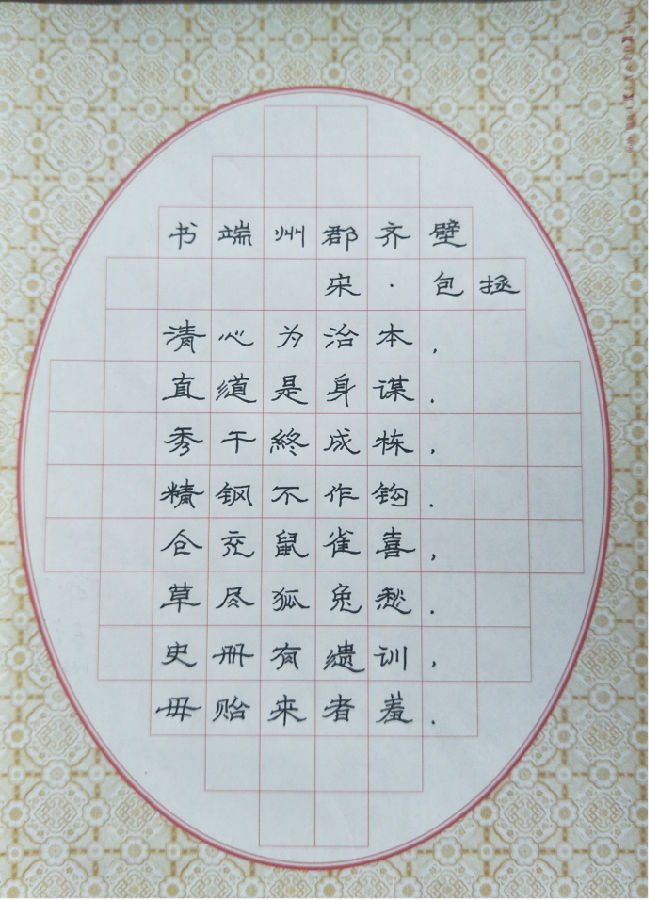 书端州郡齐壁
宋·包拯
清心为治本,
直道是身谋.
秀干終成栋,
精钢不作钩.
仓充鼠雀喜,
草尽狐兔愁.
史册有遗训,
毋贻来者羞.